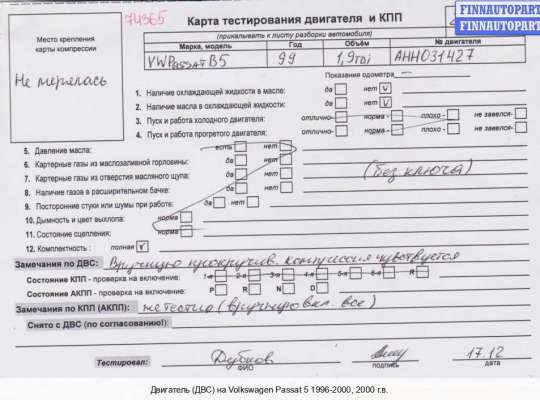 FINNAUTOPART
FINNAUTOPART
FINNAUTOPART
74365
Карта тестирования двигателя и КПП
(прикалывать к листу разборки автомобиля)
Место крепления
карты компрессии
Не мерялась
Марка, модель Год Объём № двигателя
VW Passat B5 99 1,9 TDi AHH031427
Показания одометра
1. Наличие охлаждающей жидкости в масле: да нет V
2. Наличие масла в охлаждающей жидкости: да нет
3. Пуск и работа холодного двигателя: отлично- норма - плохо - не завелся-
4. Пуск и работа прогретого двигателя: отлично- норма - плохо - не завелся-
5. Давление масла: есть нет
6. Картерные газы из маслозаливной горловины: да нет
7. Картерные газы из отверстия масляного щупа: да нет
8. Наличие газов в расширительном бачке: да нет
9. Посторонние стуки или шумы при работе: да нет
(без ключа)
10. Дымность и цвет выхлопа: норма
11. Состояние сцепления: норма
12. Комплектность : полная V
Замечания по ДВС: Вручную прокручив. компрессия чувствуется
Состояние КПП - проверка на включение: 1-я 2-я 3-я 4-я 5-я 6-я R
Состояние АКПП - проверка на включение: P R N D
Замечания по КПП (АКПП): (вручную вкл. все)
Снято с ДВС (по согласованию!):
Тестировал: 17.12
ФИО подпись дата
Двигатель (ДВС) на Volkswagen Passat 5 1996-2000, 2000 г.в.